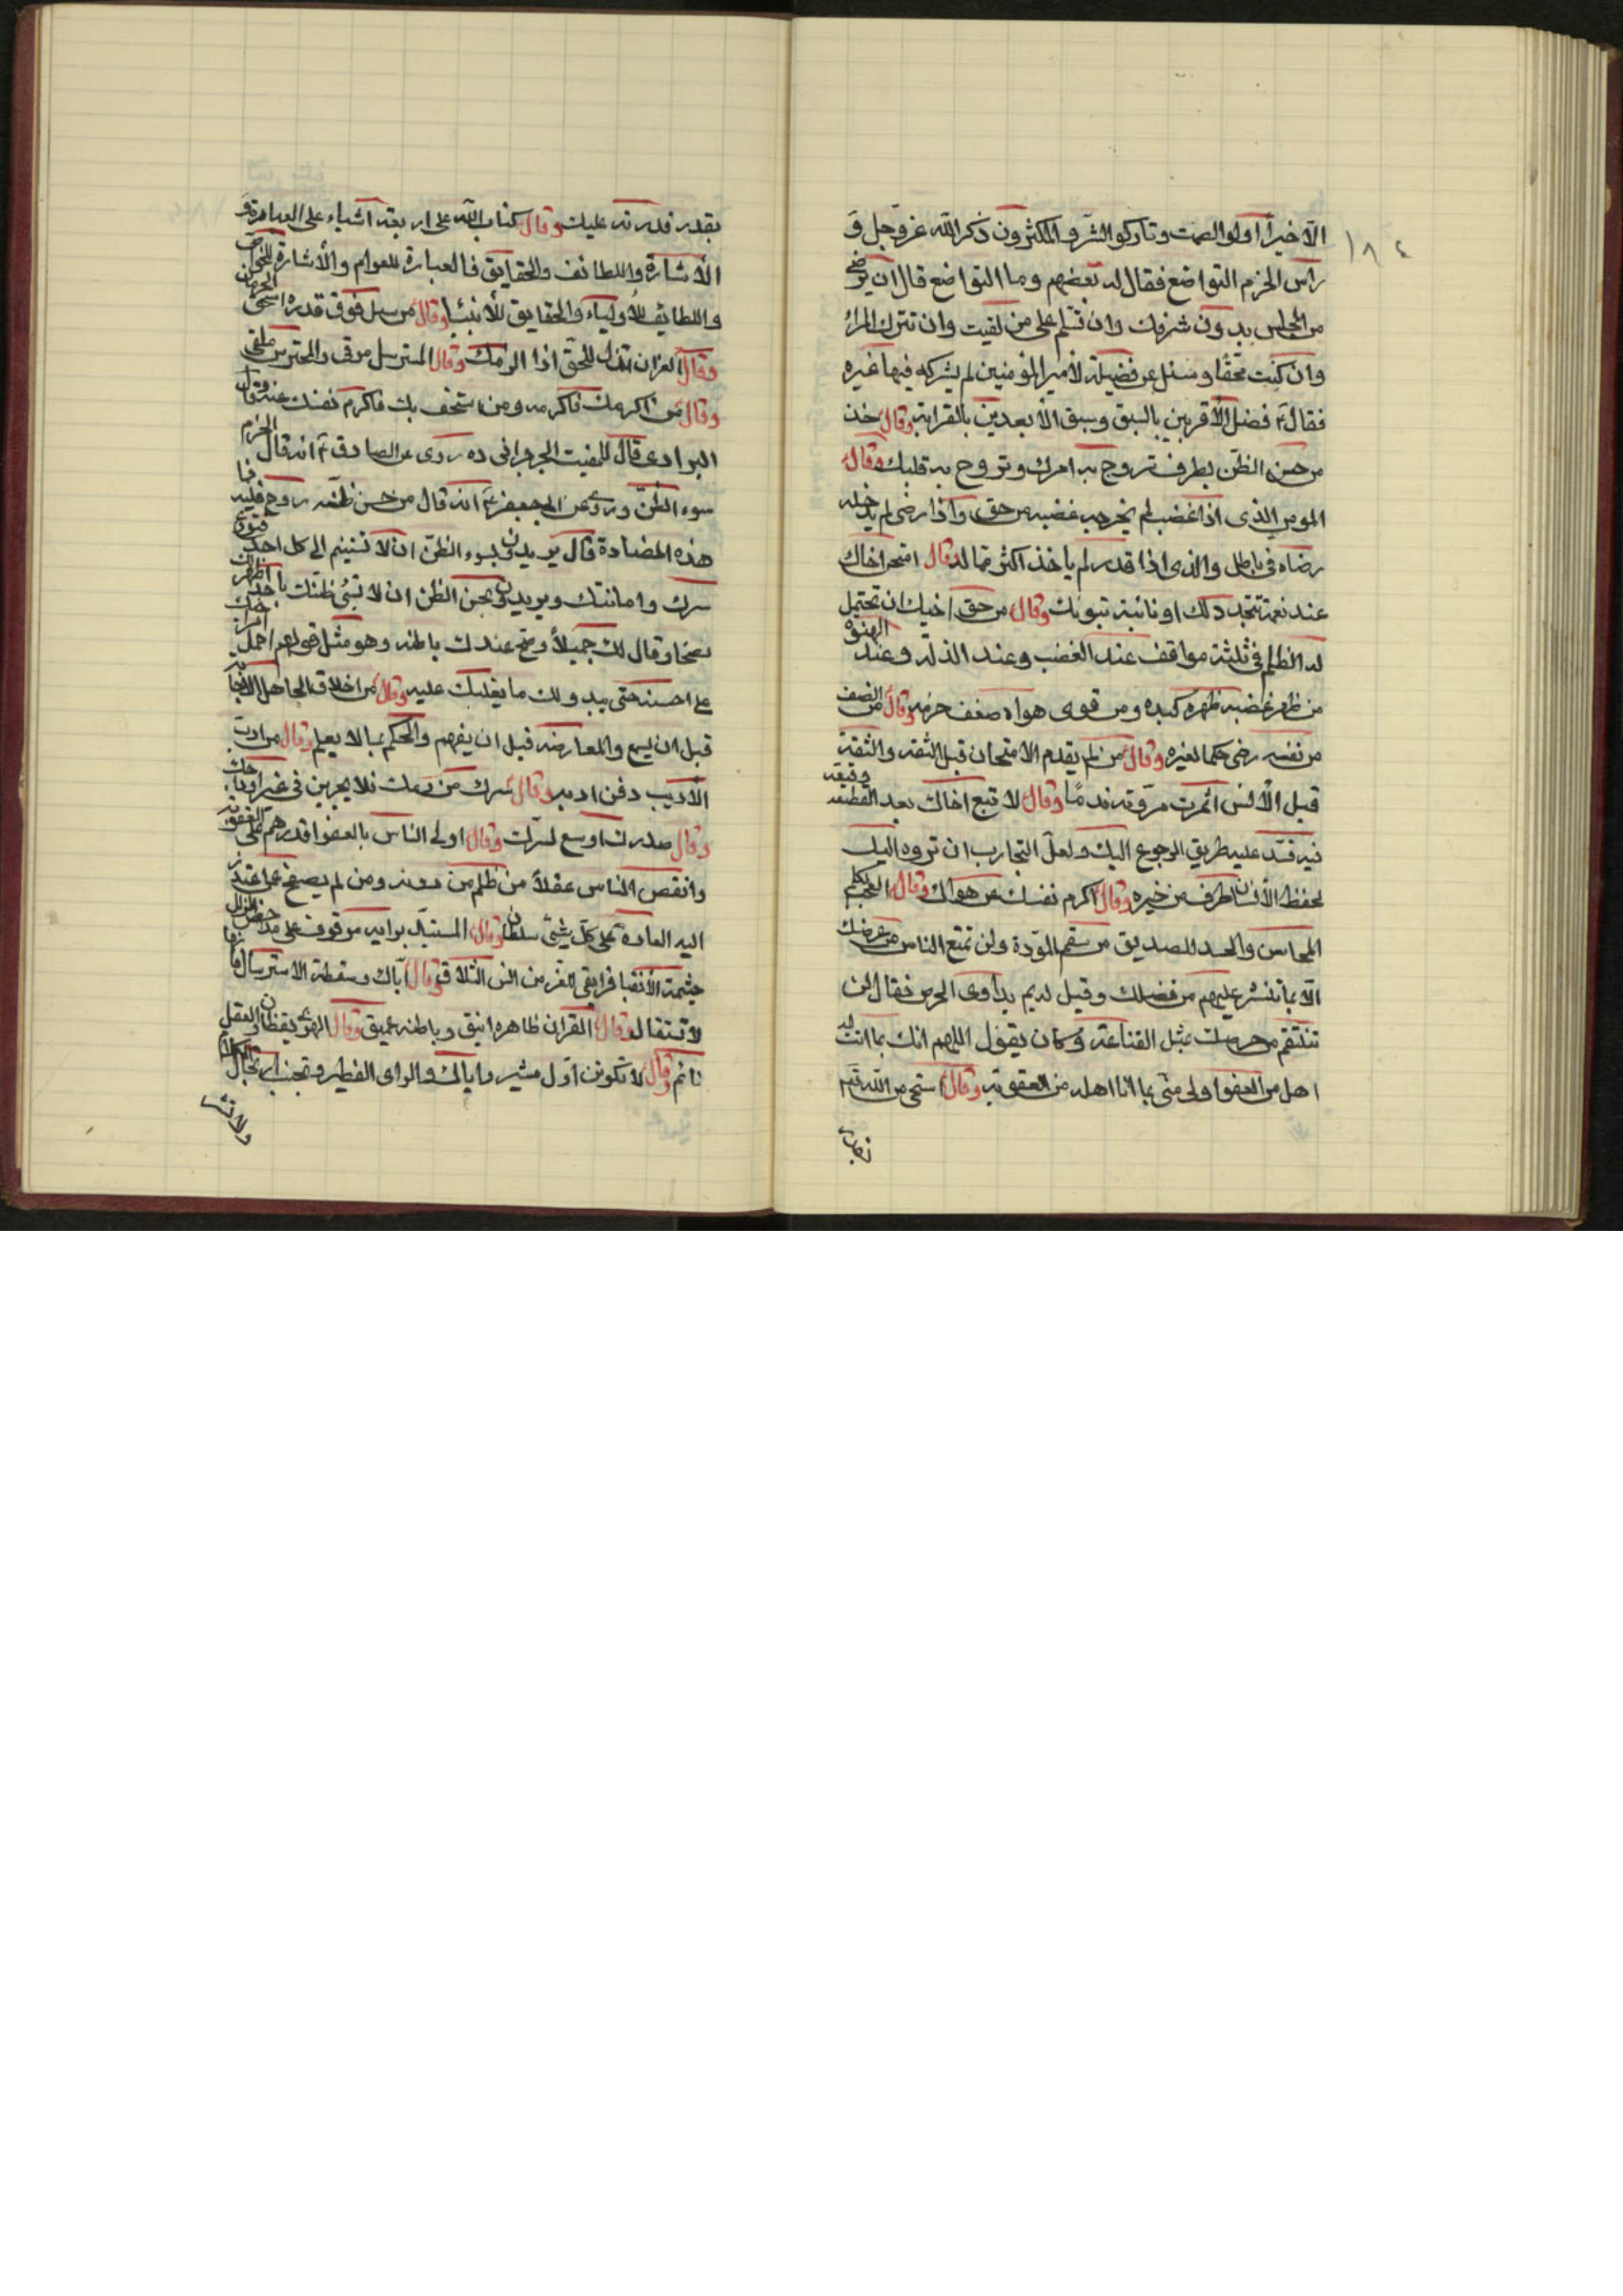 ١٨٤
الأخيراً اولوا الصمت وتاركوا الشر والمكثرون ذكر الله عز وجل و
راس الحزم التواضع فقال له بعضهم وما التواضع قال ان ترضى
من المجلس بدون شرفك وان تسلم على من لقيت وان تترك المراء
وان كنت محقا وسئل عن فضيلة لأمير المؤمنين لم يشركه فيها غيره
فقال ع فضل الأقربين بالسبق وسبق الأبعدين بالقرابة وقال خذ
من حسن الظن بطرف تروج به امرك وتروح به قلبك وقال
المومن الذى اذا غضب لم يخرجه غضبه من حق واذا رضى لم يدخله
رضاه في باطل والذى اذا قدر لم ياخذ اكثر مما له وقال امتحن اخاك
عند نعمة تتجدد لك او نائبة تنوبك وقال من حق اخيك ان تحتمل
له الظلم في ثلثة مواقف عند الغضب وعند الذلة وعند الهفوة
من ظهر غضبه ظهر كيده ومن قوى هواه ضعف حزمه وقال من انصف
من نفسه رضى حكما لغيره وقال من لم يقدم الامتحان قبل الثقة والثقة
قبل الأنس اثمرت مروته ندما وقال لا تتبع اخاك بعد القطيعة وقيعة
فيه فتسد عليه طريق الرجوع اليك ولعل التجارب ان ترده اليك
يحفظ الأنسان بطرف من خيره وقال اكرم نفسك عن هواك وقال العجب يكلم
المحاسن والحسد للصديق من سقم المودة ولن تمنع الناس من عرضك
الا بما تنشر عليهم من فضلك وقيل له بم يداوى الحرص فقال لن
تنتقم من حرصك بمثل القناعة وكان يقول اللهم انك بما انت له
اهل من العفو اولى منى بما انا اهله من العقوبة وقال استحى من الله بقدر
بقدر قدرته عليك وقال كتاب الله على اربعة اشياء على العبارة و
الأشارة واللطائف والحقايق فالعبارة للعوام والأشارة للخواص
واللطايف للأولياء والحقايق للأنبياء وقال من سئل فوق قدره استحق الحرمان
وقال العز ان تذل للحق اذا الزمك وقال المسترسل موقى والمحترس ملقى
وقال من اكرمك فاكرمه ومن استخف بك فاكرم نفسك عنه وقال
البرادى قال للمفيت الجرجرانى ده روى عن الصادق ع انه قال الحزم
سوء الظن وروى عن ابى جعفر ع انه قال من حسن ظنه روح قلبه فما
هذه المضادة قال يريدون بسوء الظن ان لا تستنيم الى كل احد فتودع
سرك وامانتك ويريدون بحسن الظن ان لا تسئ ظنك باحد اظهر لك
نصحا وقال لك جميلاً وصح عندك باطنه وهو مثل قولهم احمل امر اخيك
على احسنه حتى يبدو لك ما يغلبك عليه وقال من اخلاق الجاهل الاجابة
قبل ان يسمع والمعارضة قبل ان يفهم والحكم بما لا يعلم وقال من ادب
الأديب دفن ادبه وقال سرك من دمك فلا يجرين فى غير اوداجك
وقال صدرك اوسع لسرك وقال اولى الناس بالعفو اقدرهم على العقوبة
وانقص الناس عقلاً من ظلم من دونه ومن لم يصفح عما اعتذر
اليه العادة على كل شئ سلطان وقال المستبد برايه موقوف على مداحض الزلل
حشمة الأنقباض ابقى للعز من انس التلاق وقال اياك وسقطة الاسترسال فانها
لا تستقال وقال القران ظاهره انيق وباطنه عميق وقال الهوى يقظان والعقل
نائم وقال لا تكونن اول مشير واياك والراى الفطير وتجنب ارتجال الكلام
ولا تشر